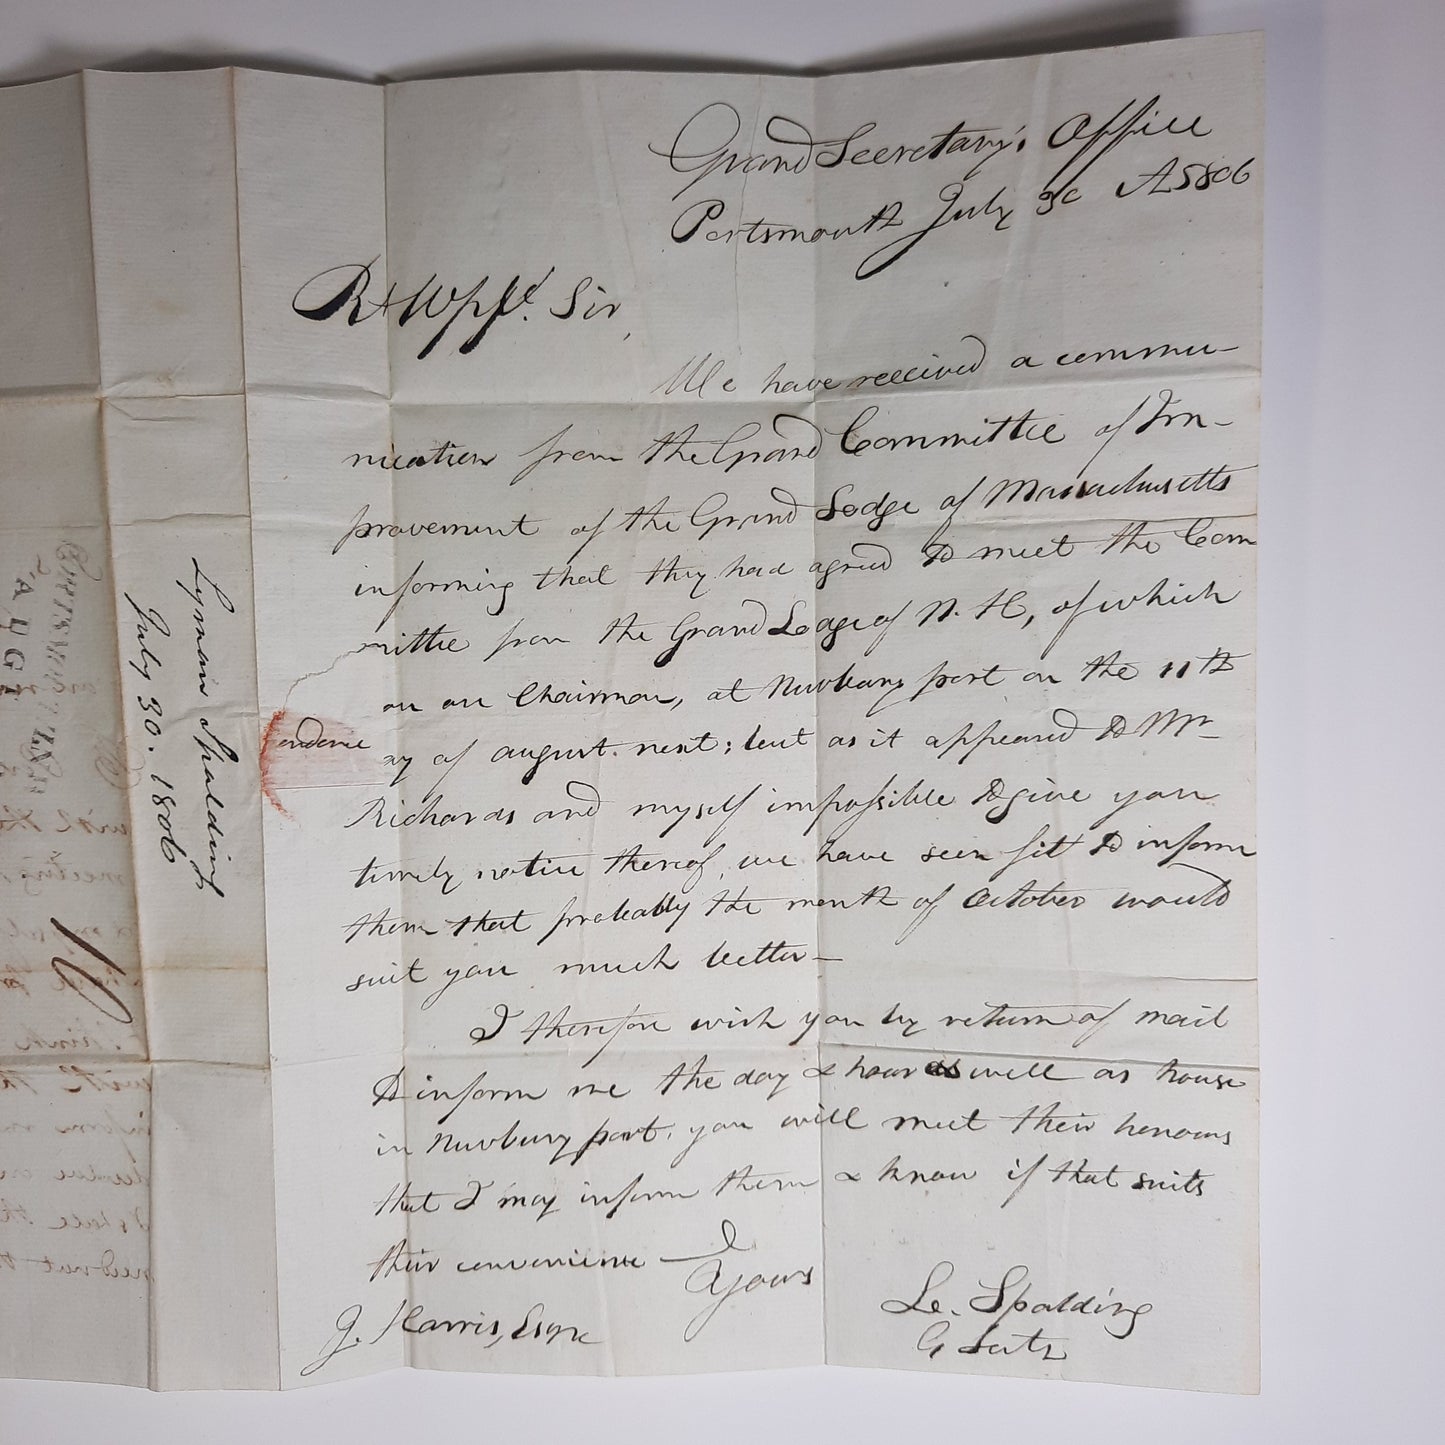 Grand Secretary's Office
Portsmouth July 30 A5806
Rt Wpfl. Sir,
We have received a commu-
nication from the Grand Committee of Im-
provement of the Grand Lodge of Massachusetts
informing that they had agreed to meet the Com
mittee from the Grand Lodge of N. H, of which
on are Chairman, at Newbury port on the 11th
ay of august next; but as it appeared to Mr
Richards and myself impossible to give you
timely notice thereof, we have seen fit to inform
them that probably the month of October would
suit you much better—
I therefore wish you by return of mail
to inform me the day & hour as well as house
in Newbury port, you will meet their honours
that I may inform them & know if that suits
their convenience—
Yours
J. Harris, Esqre
Le. Spalding
G Secty
Lyman Spalding
July 30. 1806
10
AUG